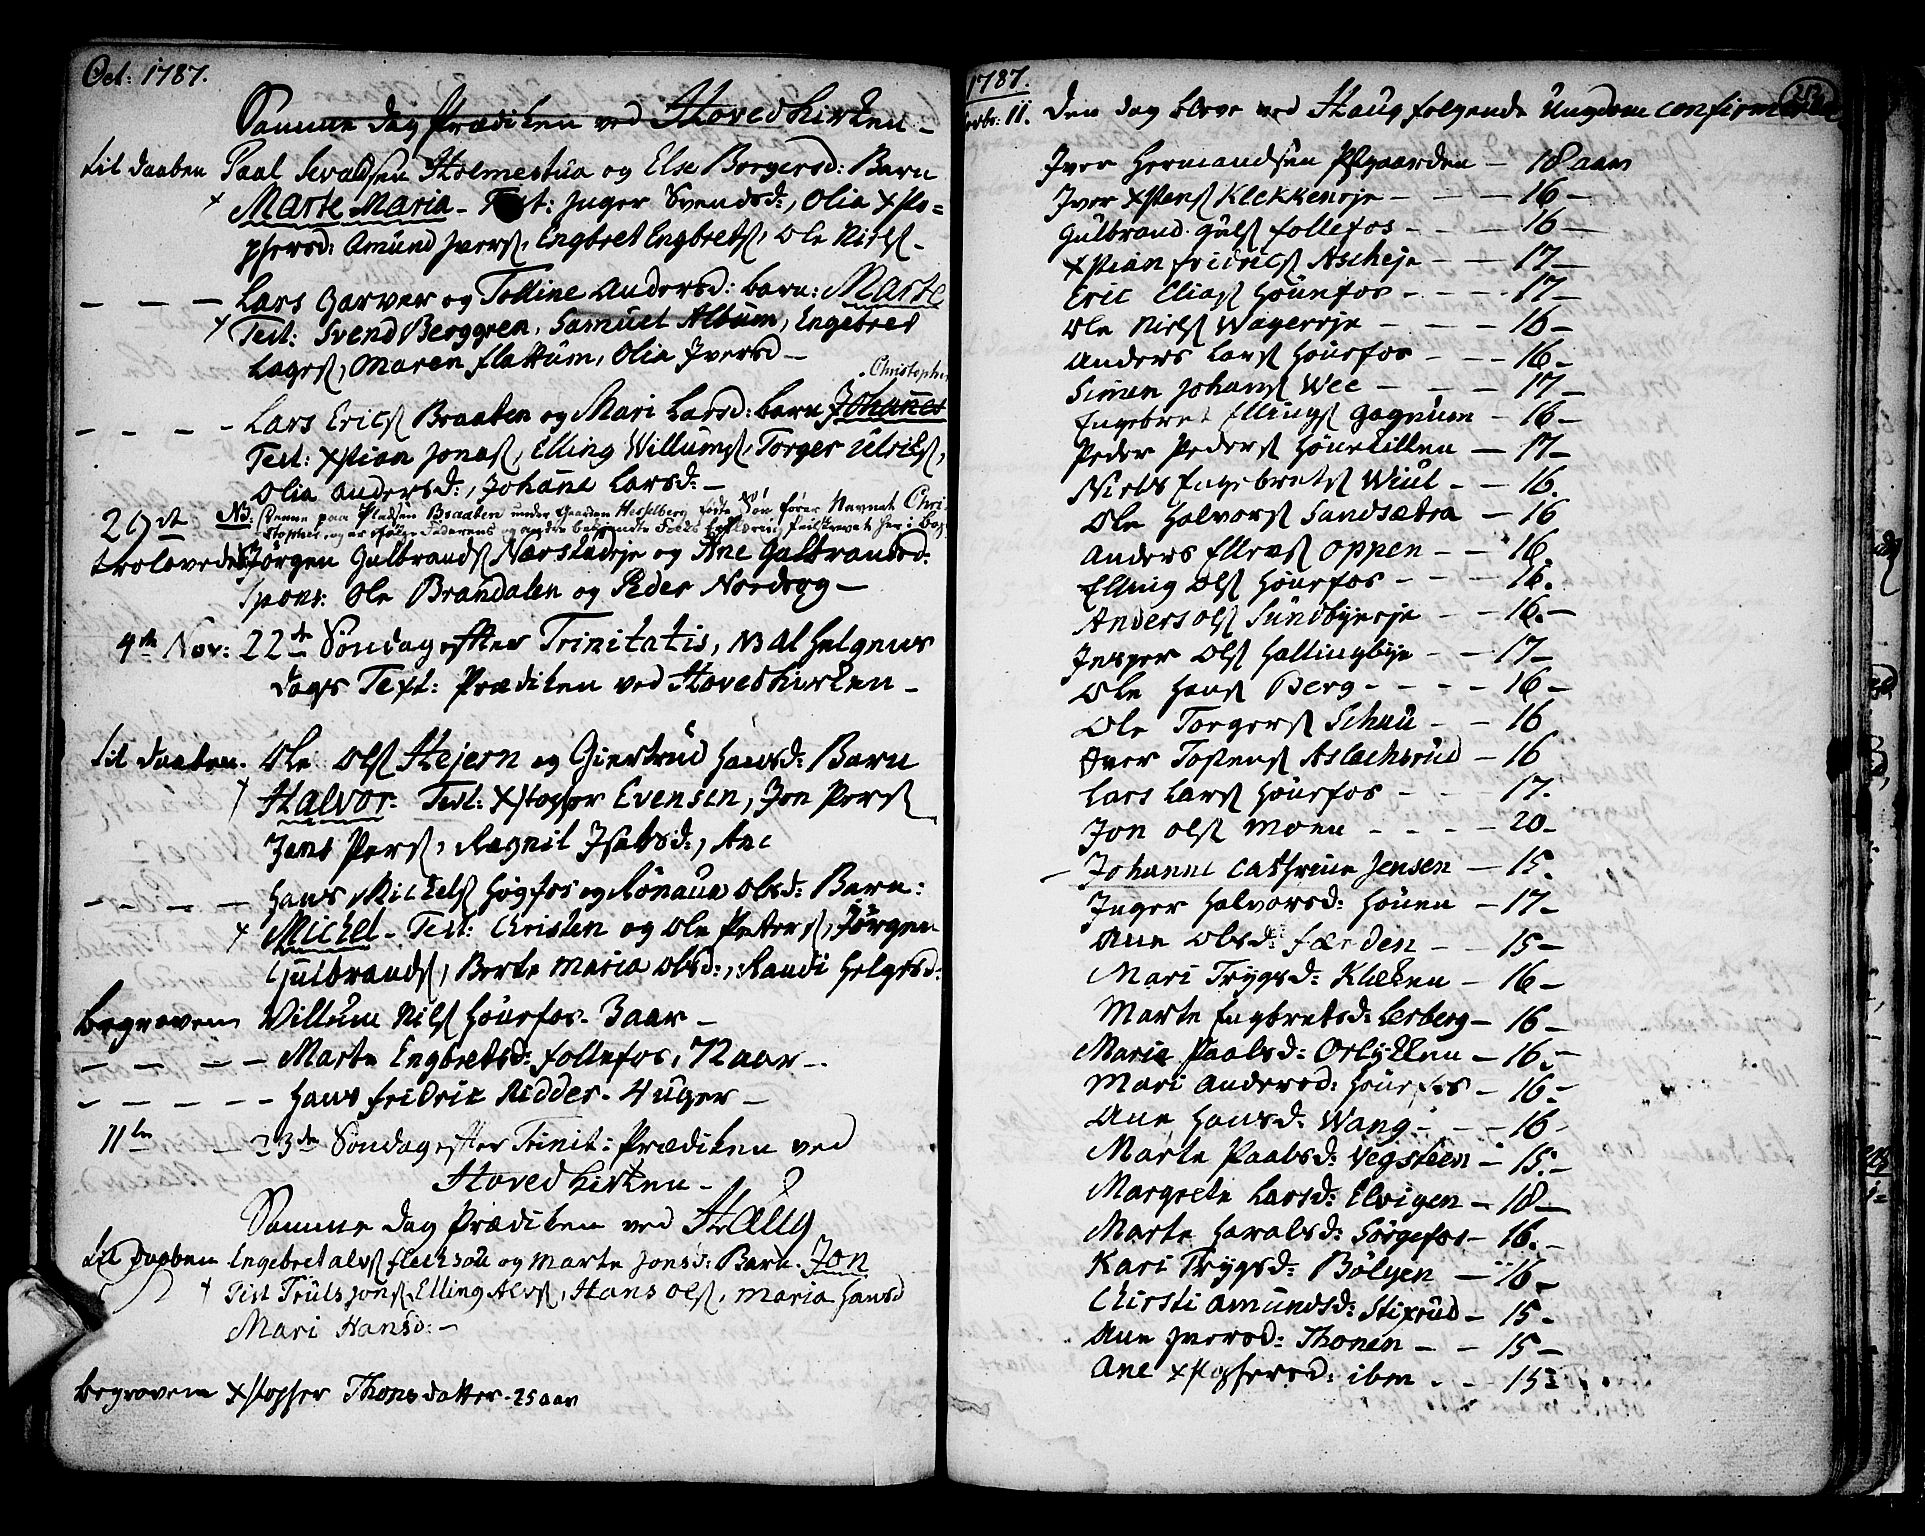 Oct: 1787.
Samme dag Prædiken ved Hovedkirken -
til daaben Paal Holmestua og Else Borgersd: Barn
Marte Maria - Test: Inger Svendsd:, Olia Xsto=
phersd: Amund Iversſ, Engbret Engbretsſ, Ole Nielsſ -
Lars Garver og Tolline Andersd: barn: Marte
Test: Svend Berggren, Samuel Album, Engebret
Lagesſ, Maren Flattum, Olia Iversd -
Christopher
Lars Ericsſ Braaten og Mari Larsd: barn Johanes
Test: Xstian Jonasſ, Elling Willumsſ, Torger Ulrichsſ,
Olia Andersd:, Johane Larsd: -
NB: Denne paa Pladsen Braaten under Gaarden Hesselberg fødte Søn fører Navnet Chri
stopher, og er ifølge Faderens og andre bekjendte Folks her i Bog
29de
trolovede Jörgen Gulbrandsſ Nærstadeje og Ane Gulbransd:
Spons: Ole Brandalen og Peder Nordeog -
4de Nov: 22de Söndag efter Trinitatis, NB Al Helgens
dags Text: Prædiken ved Hovedkirken -
til daaben. Ole Olsſ Hejern og Giertrud Hansd: Barn
Halvor. Test: Xstopher Evensen, Jon Persſ
Jens Persſ, Ragnil Isaksd:, Ane
Hans Mickelsſ Høgfos og Rönaua Olsd: Barn:
Mickel - Test: Christen og Ole Petersſ, Jörgen
Gulbrandsſ, Berte Maria Olsd:, Randi Helgesd:
begraven Willum Nilsſ Hönefos - 3 aar -
Marte Engbretsd: Follefos, 72 aar -
Hans Fridric Ridder - 4 uger -
11te 23de Söndag efter Trinit: Prædiken ved
Hovedkirken -
Samme dag Prædiken ved Haug
til daaben Engebret Alvsſ Flecksöe og Marte Jonsd: Barn. Jon
Test Truls Jonsſ, Elling Alvsſ, Hans Olsſ, Maria Hansd
Mari Hansd: -
begraven Xstopher Thons datter - 25 aar
1787.
Novbr: 11. den dag bleve ved Haug folgende Ungdom confirmerede
Iver Hermandsen Pſgaarden - 18 aar
Iver Xstensſ Klekkeneje - 16 -
Gulbrand Gulsſ Follefos - 16 -
Xstian Fridricsſ Ascheje - 17 -
Eric Eliasſ Hönefos - 17 -
Ole Nielsſ Wagereje - 16 -
Anders Larsſ Hönefos - 16 -
Simen Johansſ Wee - 17 -
Engebret Ellingsſ Gagnum - 16 -
Peder Pedersſ Hönetillen - 17 -
Niels Engebretsſ Wiul - 16.
Ole Halvorsſ Sandsætra - 16
Anders Ellevsſ Oppen - 16
Elling Olsſ Hönefos - 16.
Anders Olsſ Sundbyeeje - 16. -
Jesper Olsſ Hallingbye - 17 -
Ole Hansſ Berg - 16 -
Ole Torgersſ Schau - 16
Iver Tostensſ Aslachsrud - 16
Lars Larsſ Hönefos - 17.
Jon Olsſ Moen - 20 -
Johanne Cathrine Jensen - 15.
Inger Halvorsd: Hönen - 17 -
Ane Olsd: Færden - 15 -
Mari Trygsd: Klekken - 16 -
Marte Engbretsd: Lerberg - 16 -
Marie Paalsd: Orlykken - 16. -
Mari Andersd: Hönefos - 16. -
Ane Hansd: Wang - 16 -
Marte Paalsd: Vegsteen - 15. -
Margrete Larsd: Elvigen - 18 -
Marte Haralsd: Sörgefos - 16. -
Kari Trygsd: Bölgen - 16 -
Chirsti Amundsd: Stixrud - 15 -
Ane Iversd: Thonen - 15 -
Ane Xstophersd: ibm - 15